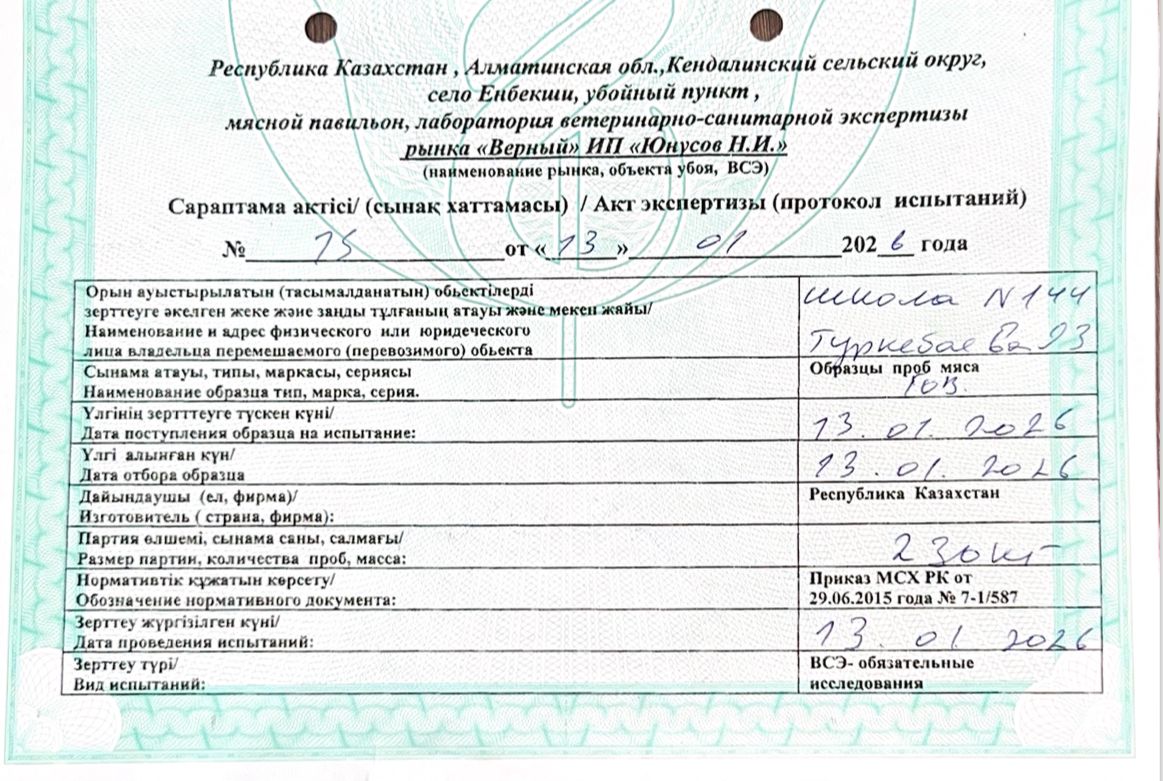 Республика Казахстан , Алматинская обл.,Кендалинский сельский округ,
село Енбекши, убойный пункт ,
мясной павильон, лаборатория ветеринарно-санитарной экспертизы
рынка «Верный» ИП «Юнусов Н.И.»
(наименование рынка, объекта убоя, ВСЭ)
Сараптама актісі/ (сынақ хаттамасы) / Акт экспертизы (протокол испытаний)
№ 75 от «13» 01 2026 года
Орын ауыстырылатын (тасымалданатын) обьектілерді
зерттеуге әкелген жеке және заңды тұлғаның атауы және мекен жайы/
Наименование и адрес физического или юридеческого
лица владельца перемешаемого (перевозимого) обьекта
школа N 144
Туркебаева 93
Сынама атауы, типы, маркасы, сериясы
Наименование образца тип, марка, серия.
Образцы проб мяса
гов.
Үлгінің зертттеуге түскен күні/
Дата поступления образца на испытание:
13. 01. 2026
Үлгі алынған күн/
Дата отбора образца
13. 01. 2026
Дайындаушы (ел, фирма)/
Изготовитель ( страна, фирма):
Республика Казахстан
Партия өлшемі, сынама саны, салмағы/
Размер партии, количества проб, масса:
230 кг
Нормативтік құжатын көрсету/
Обозначение нормативного документа:
Приказ МСХ РК от
29.06.2015 года № 7-1/587
Зерттеу жүргізілген күні/
Дата проведения испытаний:
13. 01. 2026
Зерттеу түрі/
Вид испытаний:
ВСЭ- обязательные
исследования